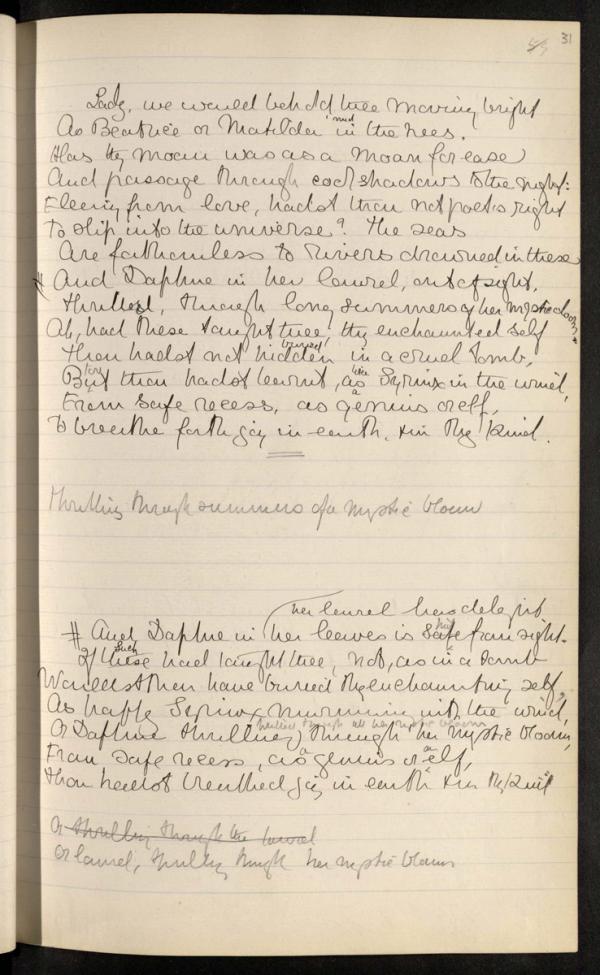 31
Lady, we would behold thee moving bright
As Beatrice or Matilda mid
in the trees.
Alas thy moan was as a moan for ease
And passage through cool shadows to the night:
Fleeing from love, hadst thou not poet's right
To slip into the universe? The seas
Are fathomless to rivers drowned in these
# And Daphne in her laurel, out of sight,
Thrilled, through long summers of her mystic bloom.
Ah, had these taught thee thy enchaunted self
Thou hadst not hidden buried in a cruel tomb,
But thou hadst learnt, as like Syrinx in the wind,
From safe recess, as a genius or elf,
To breathe forth joy in earth, & in thy kind.
Thrilling through summers of a mystic bloom
her laurel has delight
# And Daphne in her leaves is safe from sight.
If these such had taught thee, not, as in a tomb
Wouldst thou have buried thy enchaunting self,
As happy Syrinx murmuring with the wind,
Or Daphne thrilling through her mystic bloom,
thrilled through all her mystic bloom
From safe recess, as a genius or a elf,
Thou hadst breathed joy in earth & in thy kind
Or thrilling through the laurel
Or laurel, thrilling through her mystic bloom